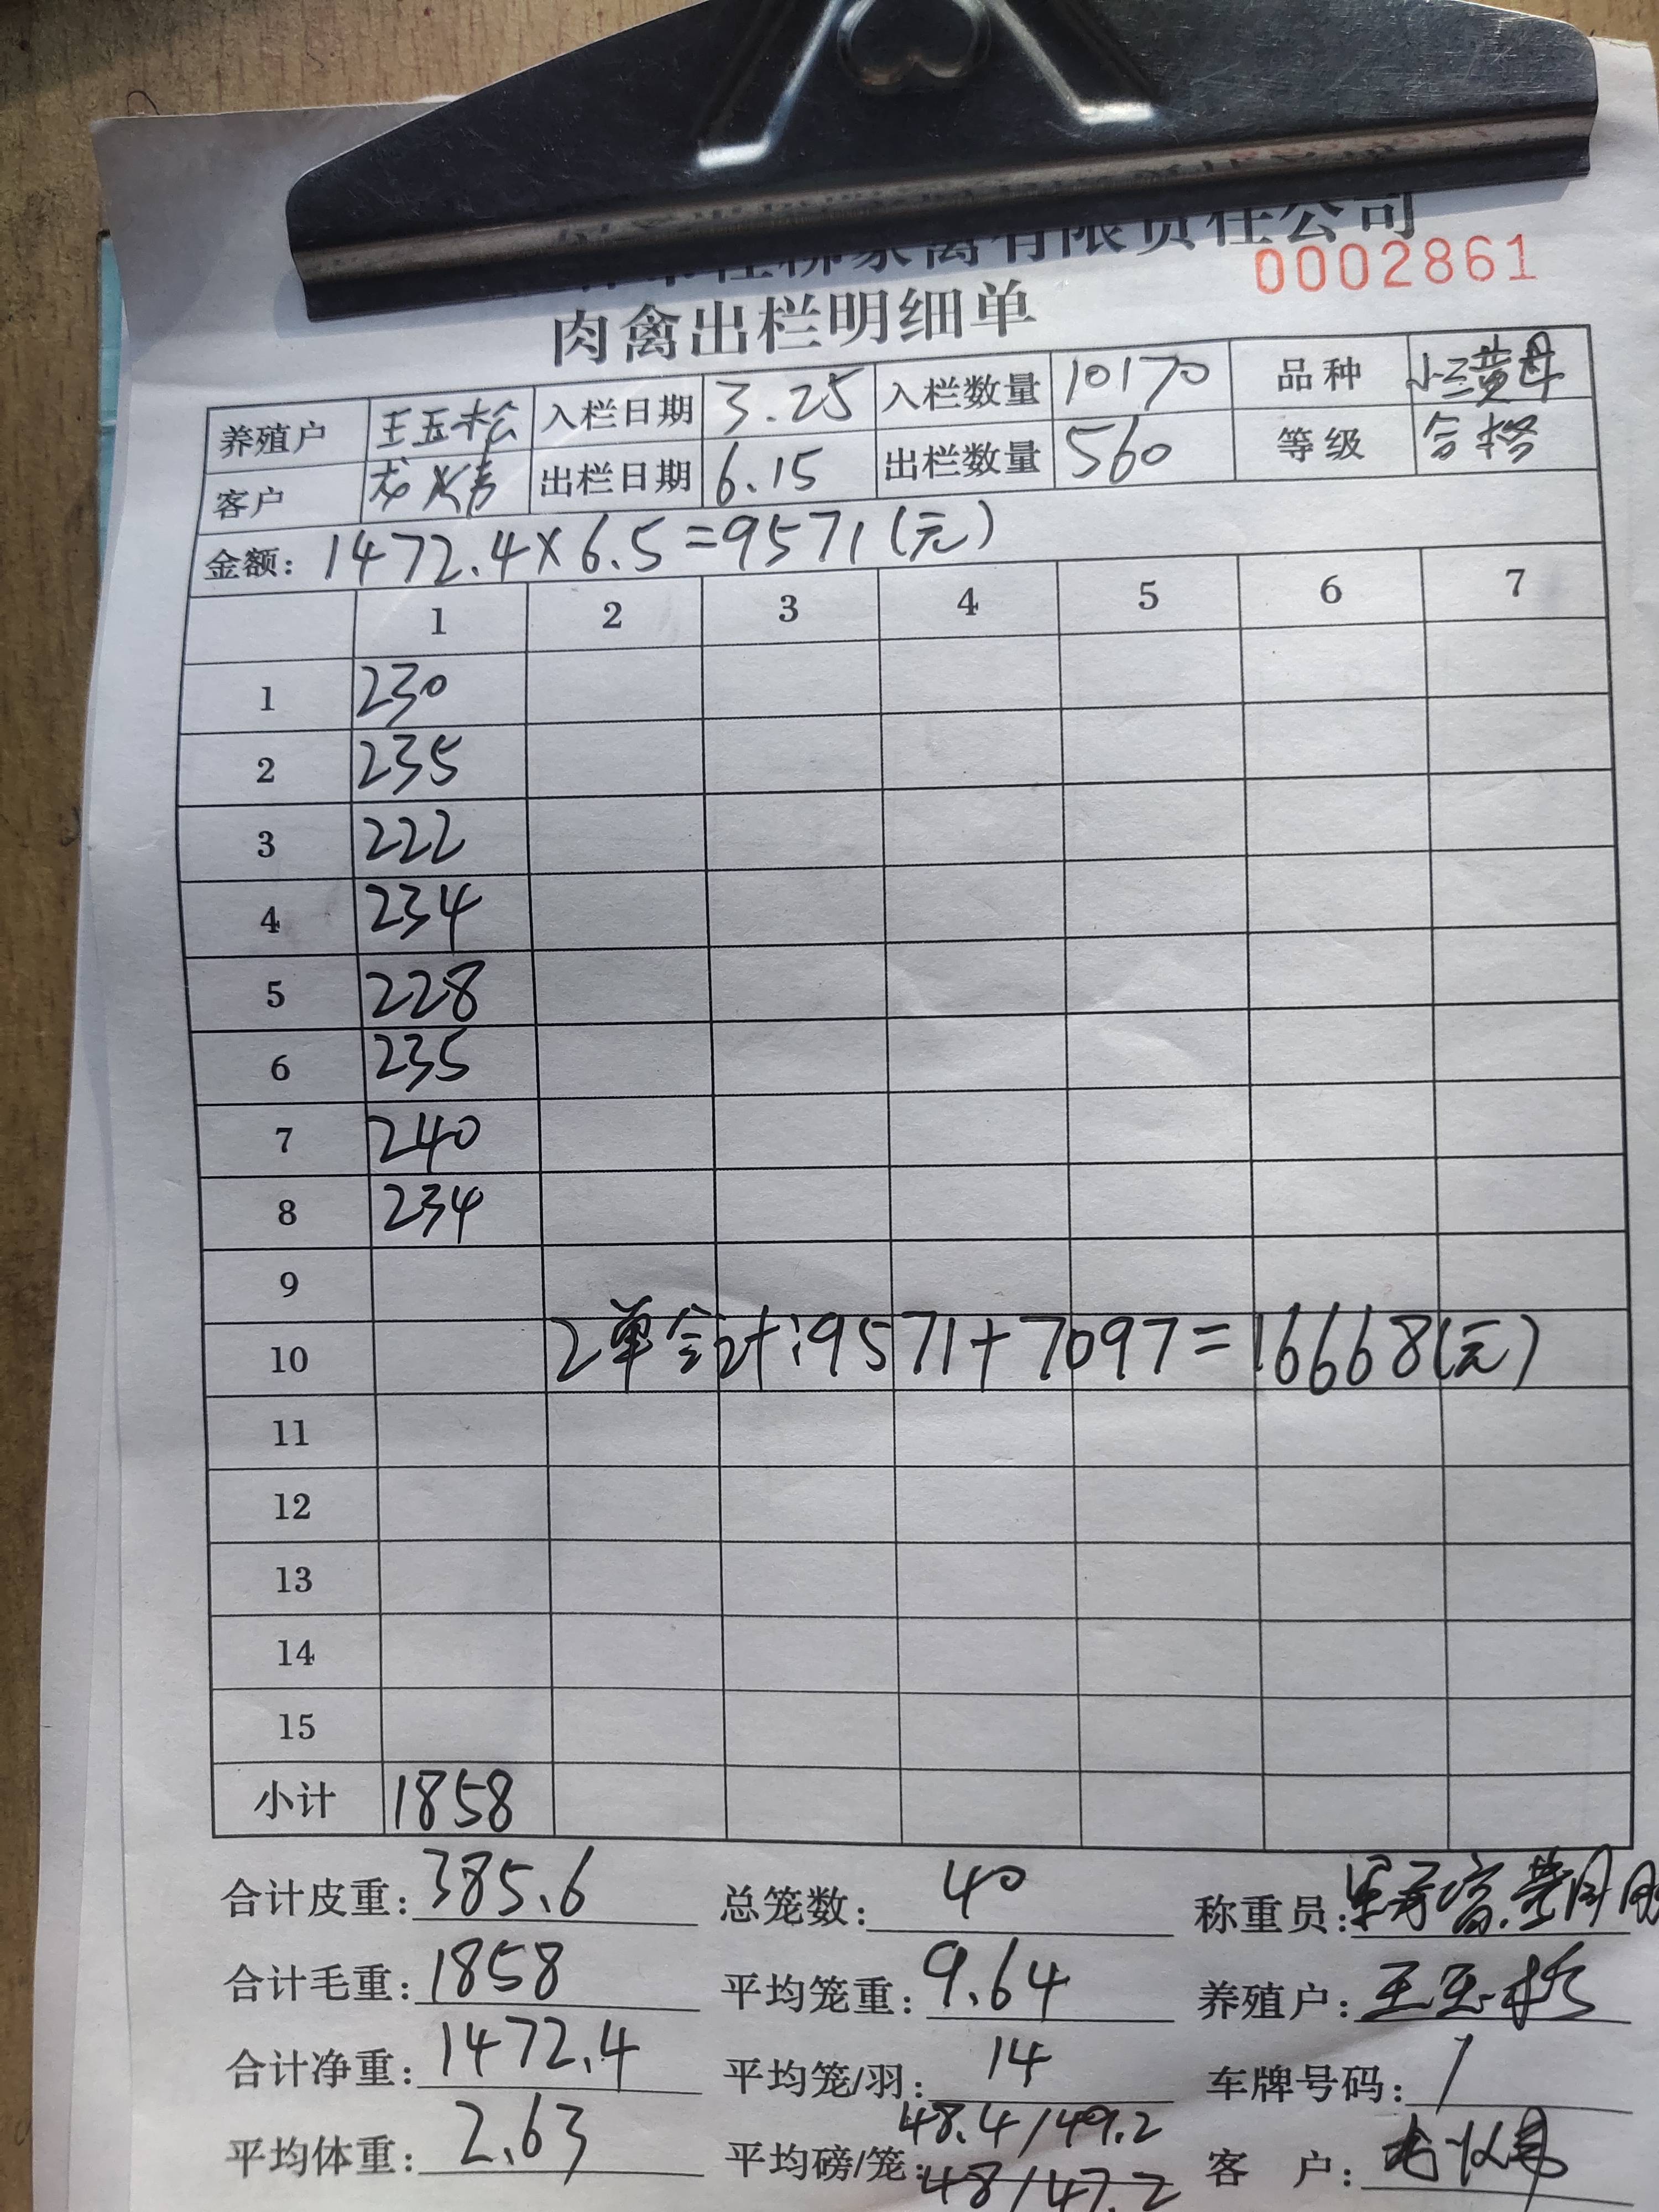 家禽有限责任公司
0002861
肉禽出栏明细单
养殖户 王五松 入栏日期 3.25 入栏数量 10170 品种 小三黄母
客户 出栏日期 6.15 出栏数量 560 等级 合格
金额: 1472.4×6.5=9571(元)
1 2 3 4 5 6 7
1 230
2 235
3 222
4 234
5 228
6 235
7 240
8 234
9
10 2单合计:9571+7097=16668(元)
11
12
13
14
15
小计 1858
合计皮重: 385.6 总笼数: 40 称重员:
合计毛重: 1858 平均笼重: 9.64 养殖户: 王玉松
合计净重: 1472.4 平均笼/羽: 14 车牌号码: /
平均体重: 2.63 平均磅/笼: 48.4/49.2 客户:
48/47.2